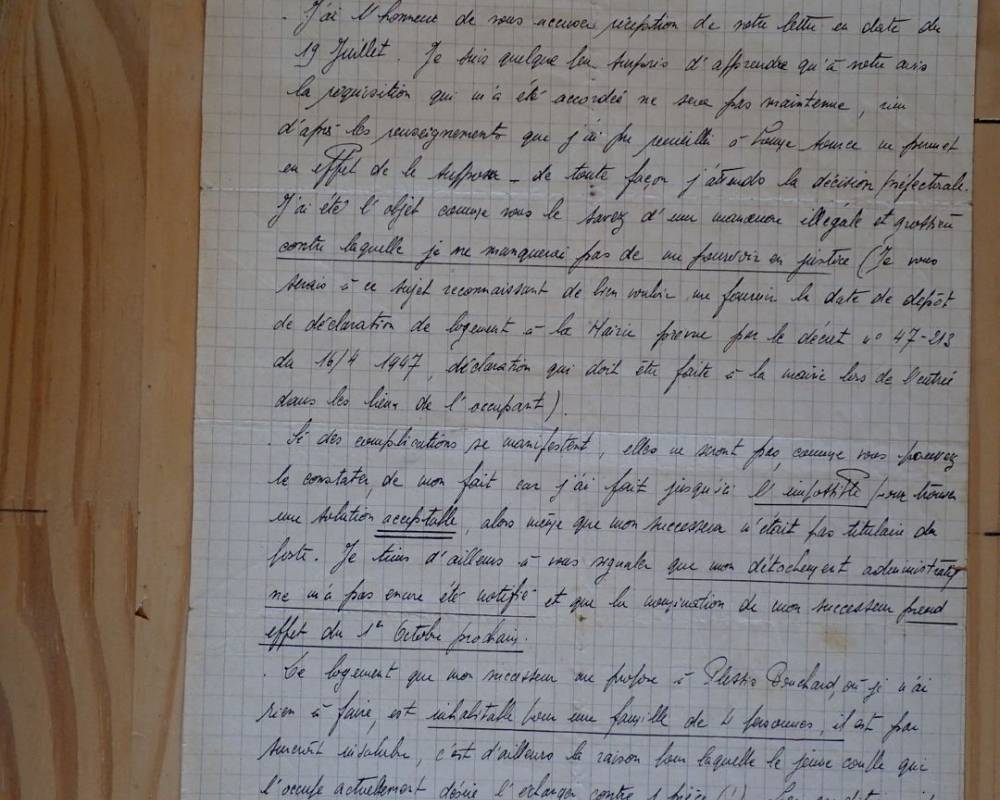 . J'ai l'honneur de vous accuser réception de votre lettre en date du
19 Juillet. Je suis quelque peu surpris d'apprendre qu'à votre avis
la réquisition qui m'a été accordée ne sera pas maintenue, rien
d'après les renseignements que j'ai pu recueillir à bonne source ne permet
en effet de le supposer _ de toute façon j'attends la décision préfectorale.
J'ai été l'objet comme vous le savez d'une manœuvre illégale et grossière
contre laquelle je ne manquerai pas de me pourvoir en justice (Je vous
serais à ce sujet reconnaissant de bien vouloir me fournir la date de dépôt
de déclaration de logement à la Mairie prévue par le décret n° 47-213
du 16/4 1947, déclaration qui doit être faite à la mairie lors de l'entrée
dans les lieux de l'occupant).
. Si des complications se manifestent, elles ne seront pas, comme vous pouvez
le constater, de mon fait car j'ai fait jusqu'ici l'impossible pour trouver
une solution acceptable, alors même que mon successeur n'était pas titulaire du
poste. Je tiens d'ailleurs à vous signaler que mon détachement administratif
ne m'a pas encore été notifié et que la nomination de mon successeur prend
effet du 1er Octobre prochain.
. Le logement que mon successeur me propose à Plessis Bouchard, où je n'ai
rien à faire, est inhabitable pour une famille de 4 personnes, il est par
surcroît insalubre, c'est d'ailleurs la raison pour laquelle le jeune couple qui
l'occupe actuellement désire l'échanger contre 1 pièce (!).